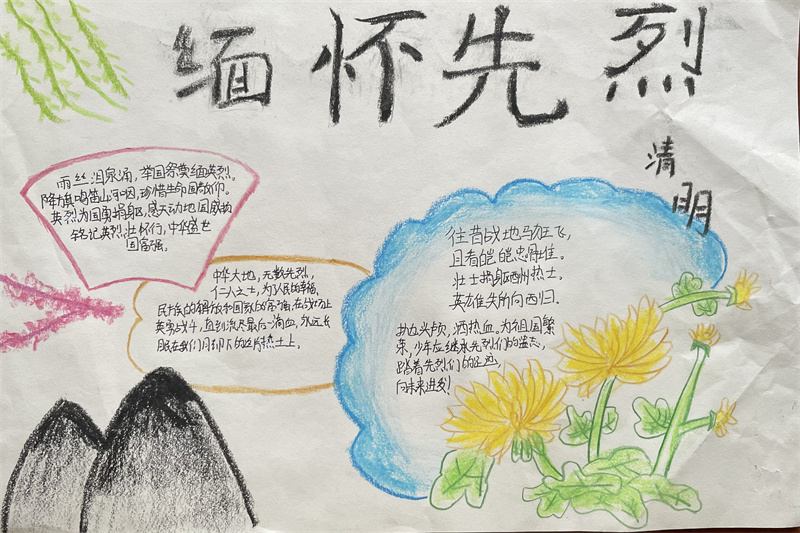 缅怀先烈
清明
雨丝泪泉涌，举国祭奠缅英烈。
降旗鸣笛山河咽，珍惜生命国致仰。
英烈为国勇捐躯，感天动地国威扬
铭记英烈壮怀行，中华盛世
国富强。
中华大地，无数先烈，
仁人志士，为了人民的幸福、
民族的解放和国家的富强，在战场上
英勇战斗，直到流尽最后一滴血，永远长
眠在我们月明下的这片热土上。
往昔战地马狂飞，
且看皑皑忠骨堆。
壮士捐躯洒热土。
英雄失所向西归.
抛头颅、洒热血。为祖国繁
荣，少年应继承先烈们的遗志，
踏着先烈们的足迹，
向未来进发！